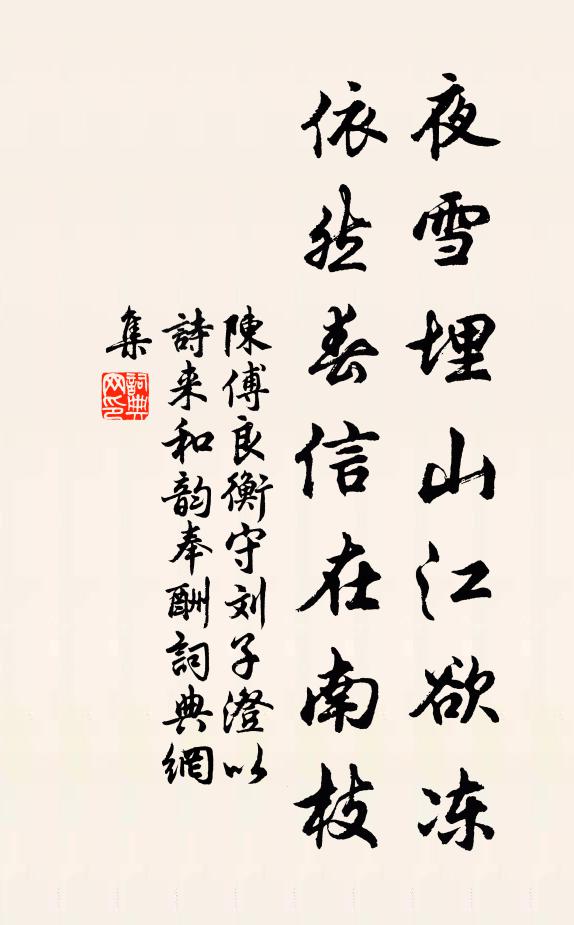 夜雪埋山江欲冻
依然春信在南枝
陳傅良衡守刘子澄以
詩来和韵奉酬詞典網
集
詞典网印